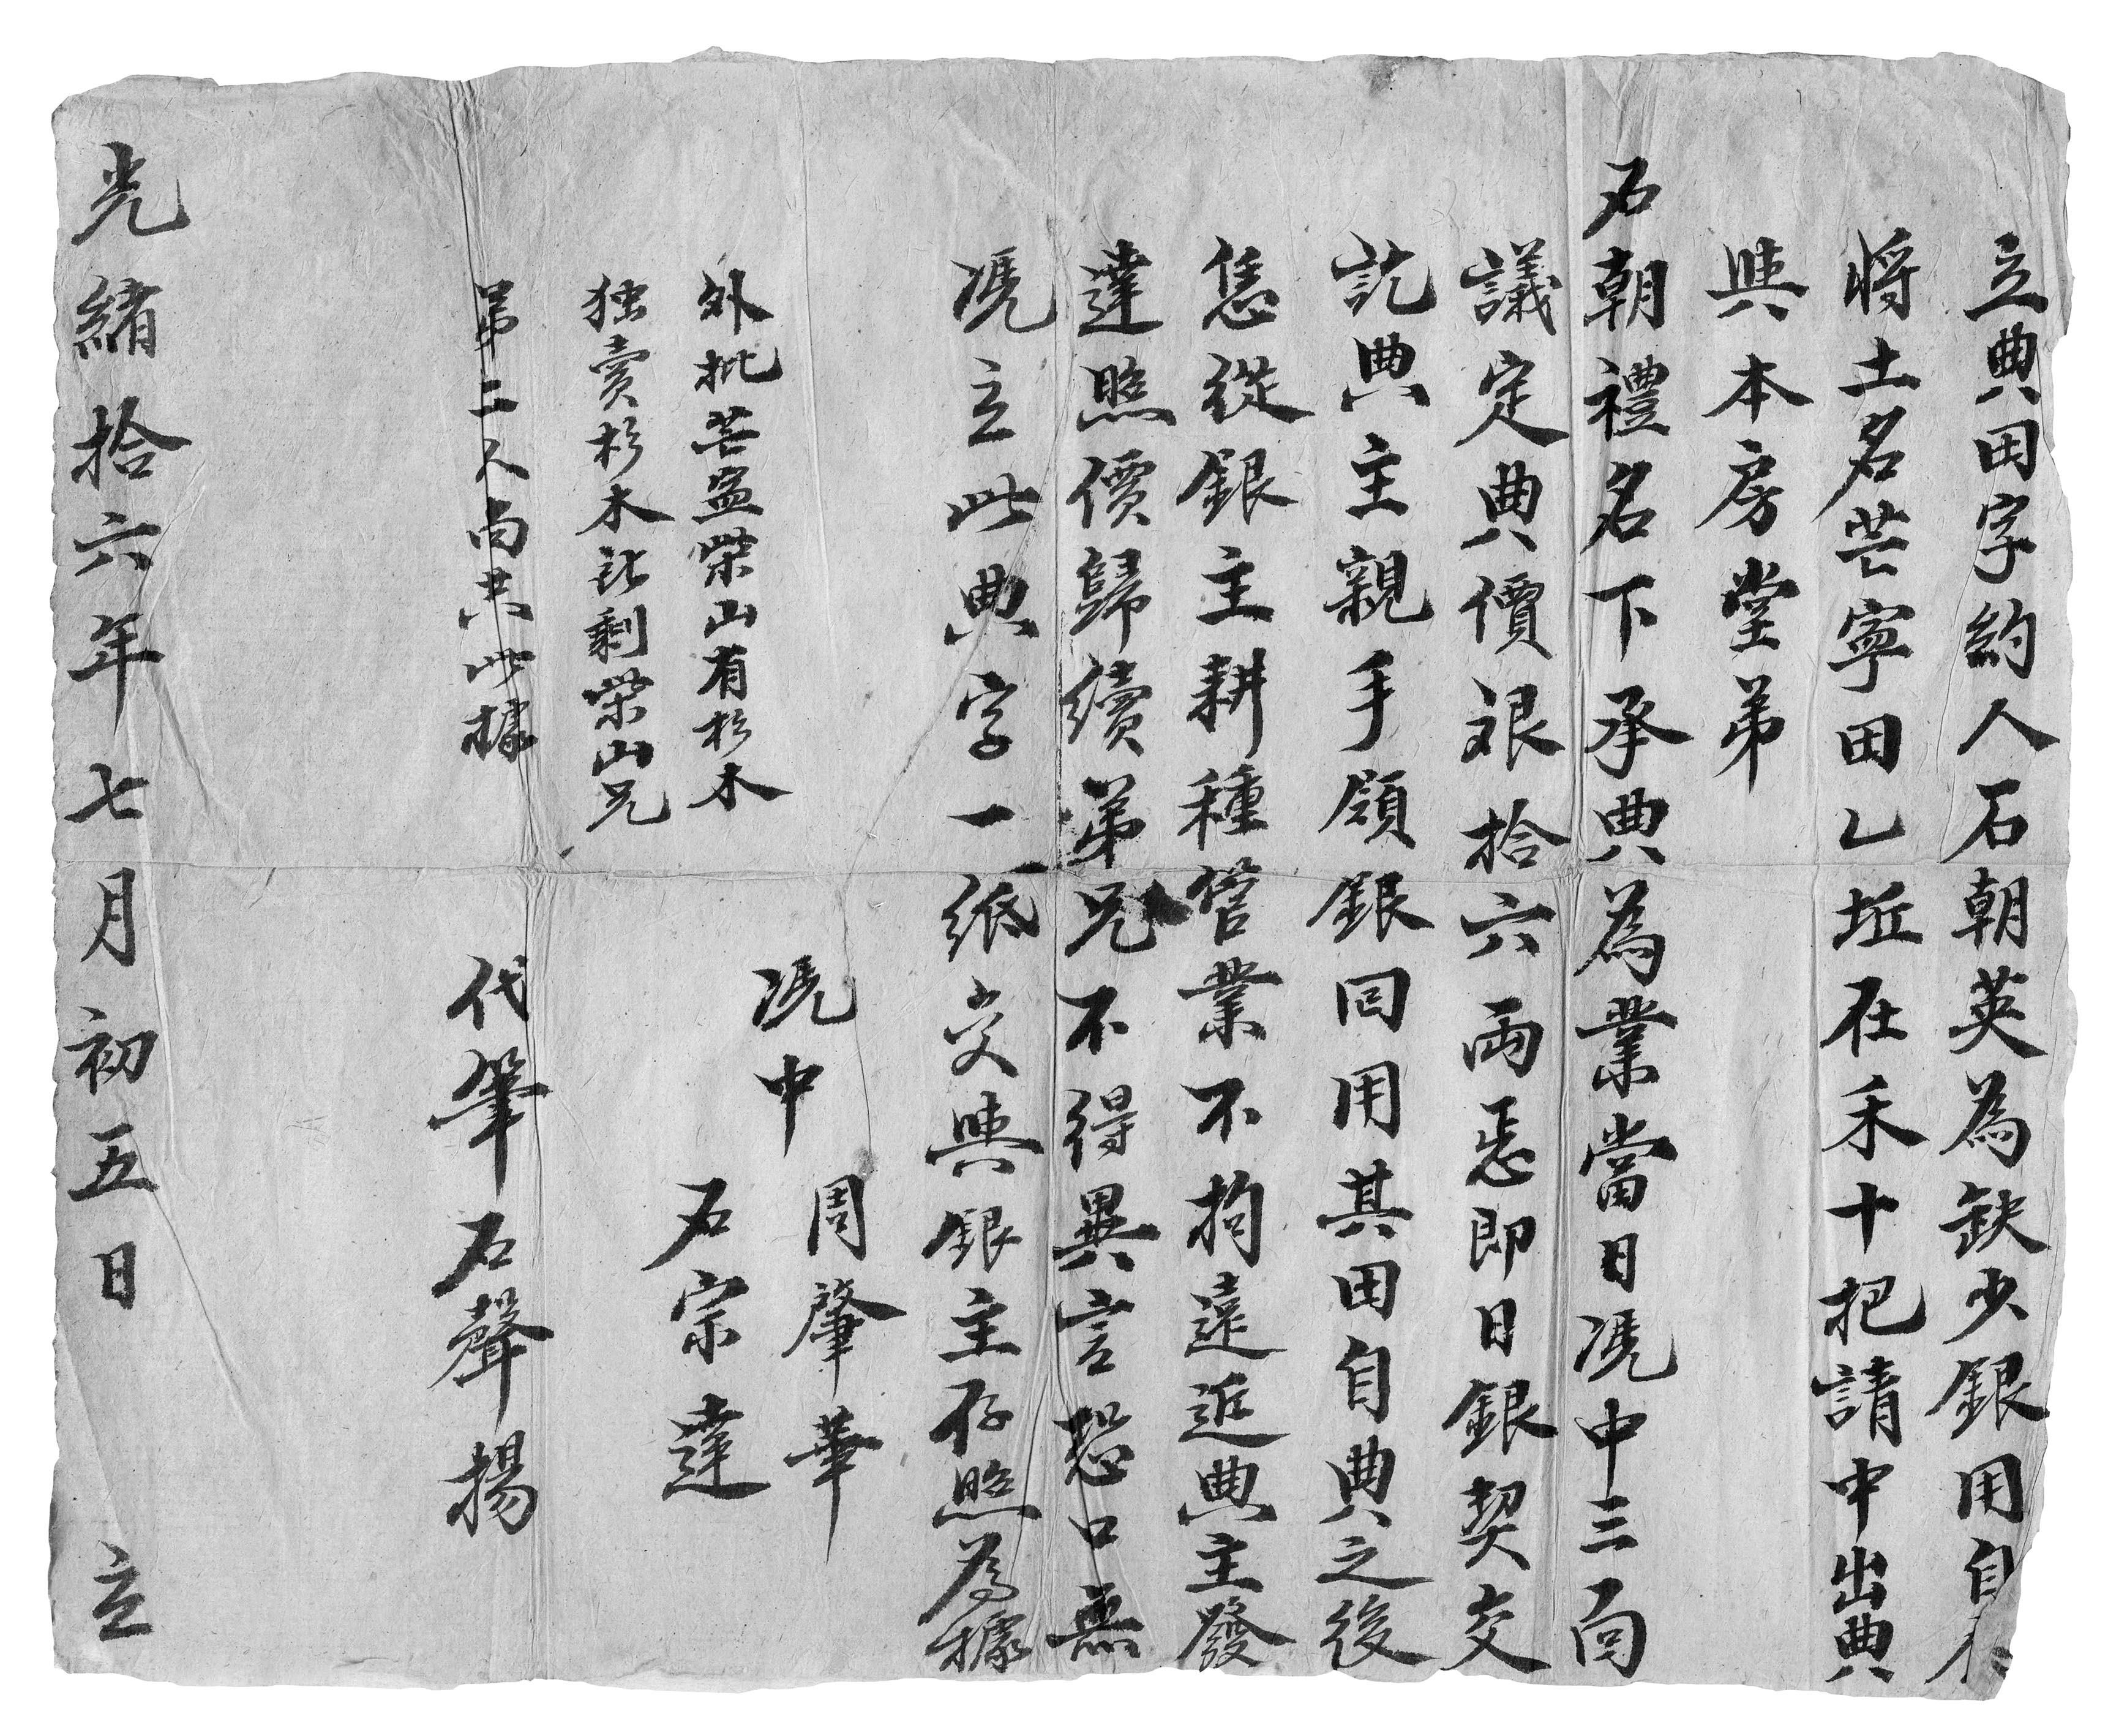 立典田字約人石朝英為缺少銀用自
將土名芒寜田乙坵在禾十把請中出典
與本房堂弟
石朝禮名下承典為業當日凴中三面
議定典價艮拾六両𢙣即日銀契交
訖典主親手領銀回用其田自典之後
恁從銀主耕種管業不拘遠近典主發
達照價歸續弟兄不得異言恐口無
凴立此典字一紙交與銀主存照為據
外批芒盗柴山有杉木
独賣杉木訖剩柴山兄
弟二人面共此據
凴中 周肇華
石宗達
代筆石聲揚
光緒拾六年七月初五日 立